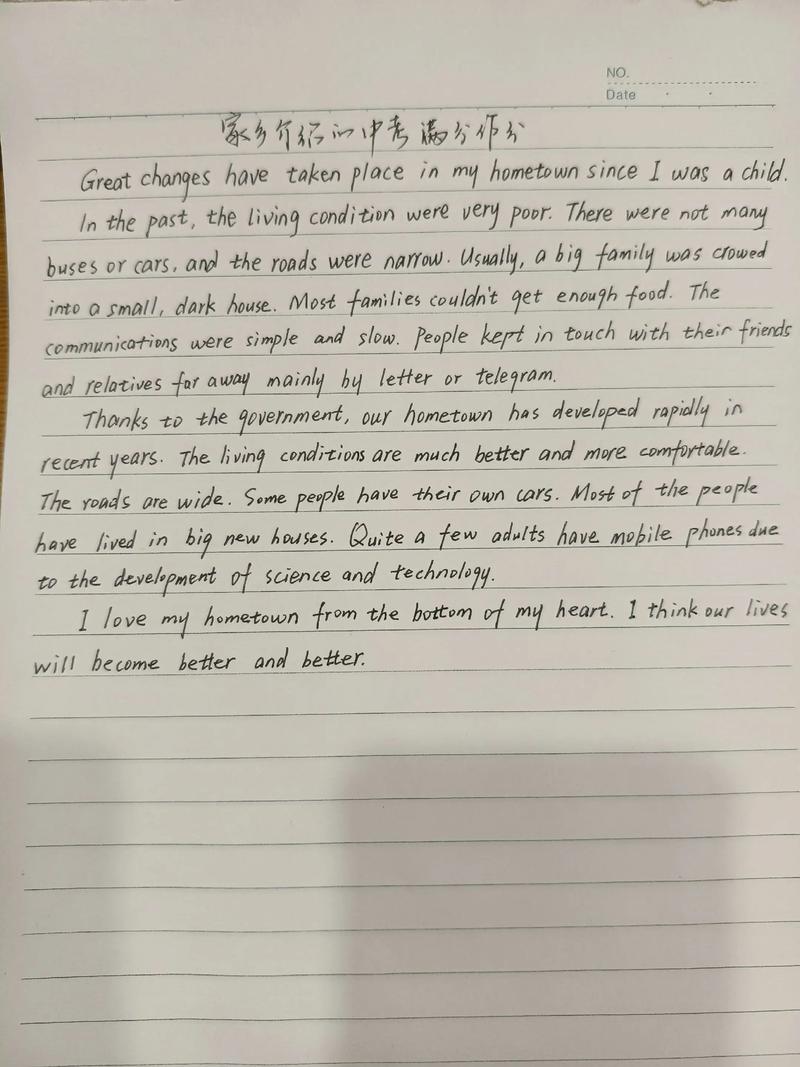 NO.
Date
家乡介绍的中考满分作分
Great changes have taken place in my hometown since I was a child.
In the past, the living condition were very poor. There were not many
buses or cars, and the roads were narrow. Usually, a big family was crowed
into a small, dark house. Most families couldn't get enough food. The
communications were simple and slow. People kept in touch with their friends
and relatives far away mainly by letter or telegram.
Thanks to the government, our hometown has developed rapidly in
recent years. The living conditions are much better and more comfortable.
The roads are wide. Some people have their own cars. Most of the people
have lived in big new houses. Quite a few adults have mobile phones due
to the development of science and technology.
I love my hometown from the bottom of my heart. I think our lives
will become better and better.